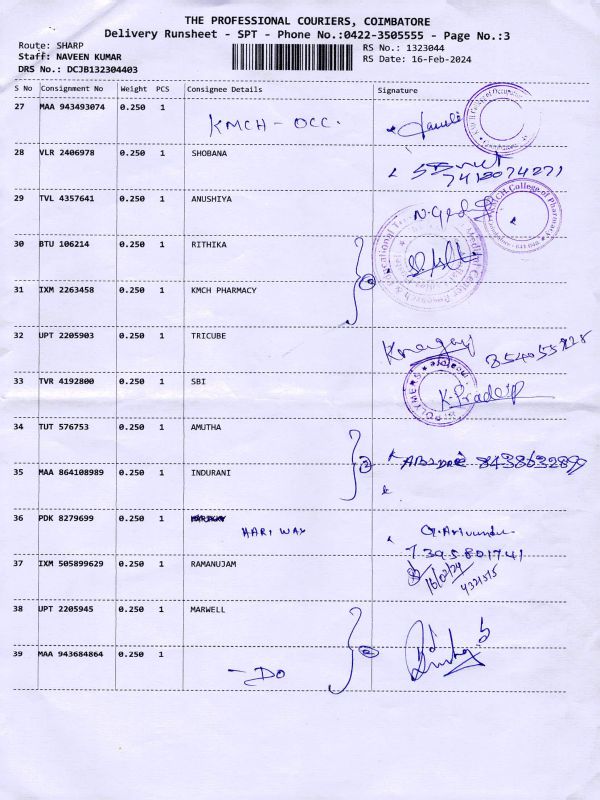 THE PROFESSIONAL COURIERS, COIMBATORE
Delivery Runsheet - SPT - Phone No.:0422-3505555 - Page No.:3
Route: SHARP
RS No.: 1323044
Staff: NAVEEN KUMAR
RS Date: 16-Feb-2024
DRS No.: DCJB132304403
S No Consignment No Weight PCS Consignee Details Signature
27 MAA 943493074 0.250 1 KMCH - OCC.
28 VLR 2406978 0.250 1 SHOBANA
7418074271
29 TVL 4357641 0.250 1 ANUSHIYA
KMCH College of Pharmacy
30 BTU 106214 0.250 1 RITHIKA
31 IXM 2263458 0.250 1 KMCH PHARMACY
32 UPT 2205903 0.250 1 TRICUBE
33 TVR 4192800 0.250 1 SBI K. Pradeep
POLYMERS
34 TUT 576753 0.250 1 AMUTHA
8438632899
35 MAA 864108989 0.250 1 INDURANI
36 PDK 8279699 0.250 1
HARI WAY
7395801741
37 IXM 505899629 0.250 1 RAMANUJAM
16/02/24
4321515
38 UPT 2205945 0.250 1 MARWELL
39 MAA 943684864 0.250 1
- DO